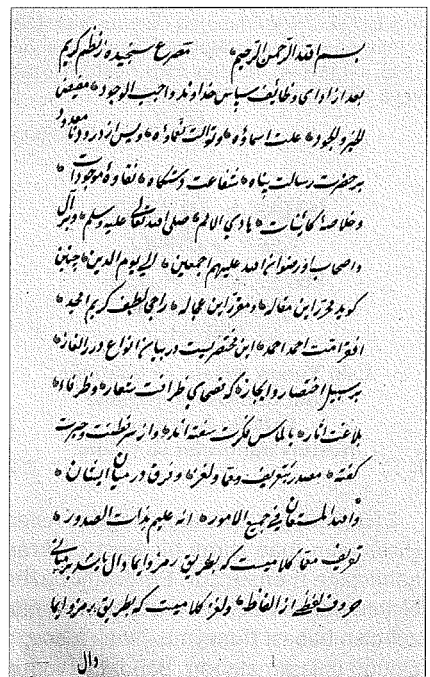 بسم الله الرحمن الرحیم مصرع سنجیده ز نظم کریم
بعد از ادای وظائف سپاس خداوند واجب الوجود مفیض
الخیر والجود علت اسماؤه و توالت نعماؤه و پس از درود نامعدود
بر حضرت رسالت پناه شفاعت دستگاه نقاوهٔ موجودات
و خلاصهٔ کائینات هادی الامم صلی الله تعالی علیه وسلم و بر آل
و اصحاب او رضوان الله علیهم اجمعین الی یوم الدین چنین
کوید محرر این مقاله و مقرر این عجاله راجی لطیف کریم المجید
افقر امت احمد احمد این مختصریست در بیان انواع درر الغاز
بر سبیل اختصار و ایجاز که فصحای ظرافت شعار و ظرفاء
بلاغت آثار بالماس فکرت سفته اند و از سر فطنت و حیرت
کفته مصدر بتعریف معما و لغز و فرق در میان ایشان
و الله المستعان فی جمیع الامور انه علیم بذات الصدور
تعریف معما کلامیست که بطریق رمز و ایما دال باشد بر مبانی
حروف لفظی از الفاظ و لغز کلامیست که بطریق رمز و ایما
دال